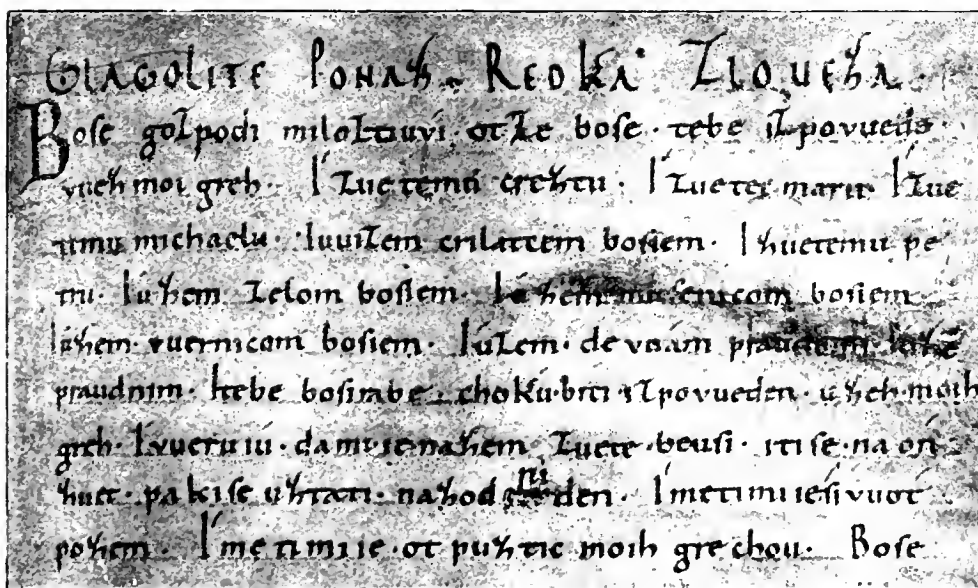 GLAGOLITE PONAZ. REDKA ZLOUEZA.
Bose gozpodi miloztiuvi. otze bose. tebe izpovuede.
vuez moi greh. I zuetemu creztu. I zuetei marii. I zue
temu michaelu. Iuuizem crilatcem bosiem. I zuetemu pe
tru. Iuzem zelom bosiem. Iuzem mucenicom bosiem.
Iuzem. vuernicom bosiem. Iuzem. devuám praudnim. Iuzē
praudnim. Itebe bosirabe. chokú. biti izpovueden. uzeh. moih
greh. I vueruiu. da mi ie. na zem zuete. beusi. iti se. na on
zuet. paki se uztati. na zodni den. I meti mi ie sivuot
pozem. I meti mi ie. ot puztic moih grechou. Bose